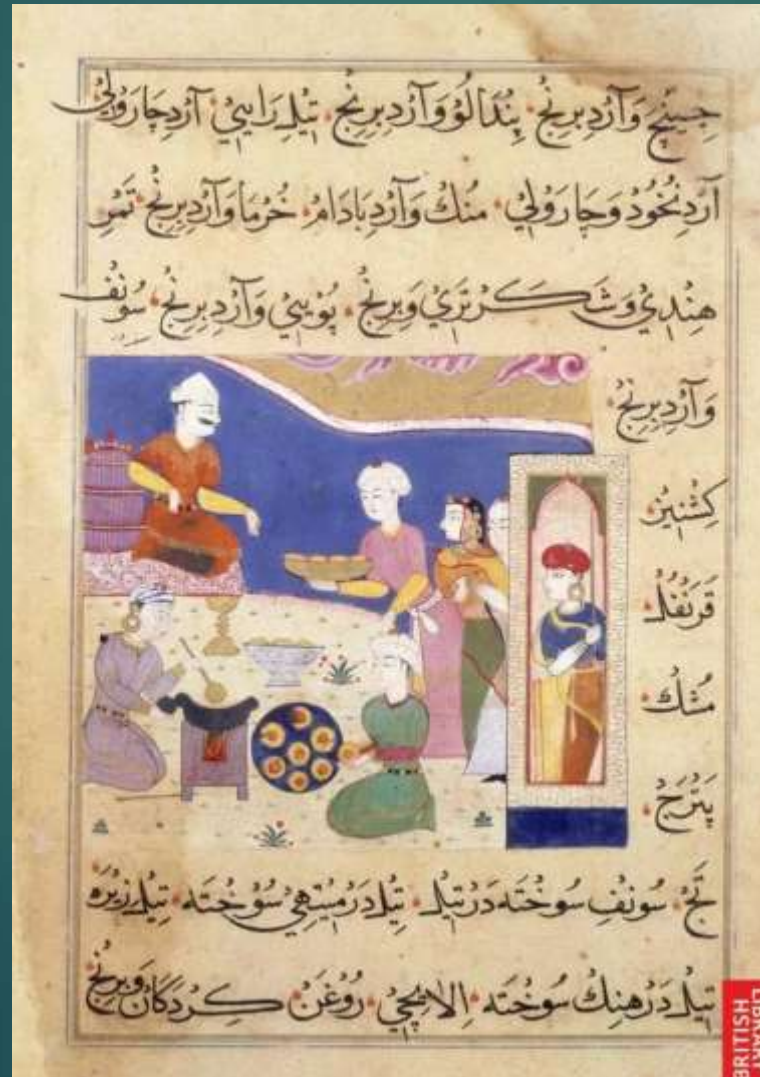 وَآرْدِبِرِنْجْ، پِنْدَالُوْ وَآرْدِبِرِنْجْ، تِيْلِ رَايِيْ، آرْدِ چَارَوْلِيْ
آرْدِ نُخُوْد وَچَارَوْلِيْ، مُنْك وَآرْدِ بَادَامْ، خُرْمَا وَآرْدِبِرِنْجْ، تَمْرِ
هِنْدِيْ وَشَكَرْتَرِيْ وَبِرِنْجْ، پُوْيِيْ وَآرْدِبِرِنْجْ، سُوْنْف
وَآرْدِبِرِنْجْ،
كِشْنِيْز،
قَرَنْفُلْ،
مُشْك،
پَتْرَجْ،
تَجْ، سُوْنْفِ سُوْخْتَه دَرْ تِيْلْ، تِيْلْ دَرْ مِيْتْهِيْ سُوْخْتَه، تِيْلْ زِيْرَه
تِيْلْ دَرْ هِنْك سُوْخْتَه، اِلَايْچِيْ، رُوْغَنْ كِرْدَكَانْ وَبِرِنْجْ
BRITISH
LIBRARY